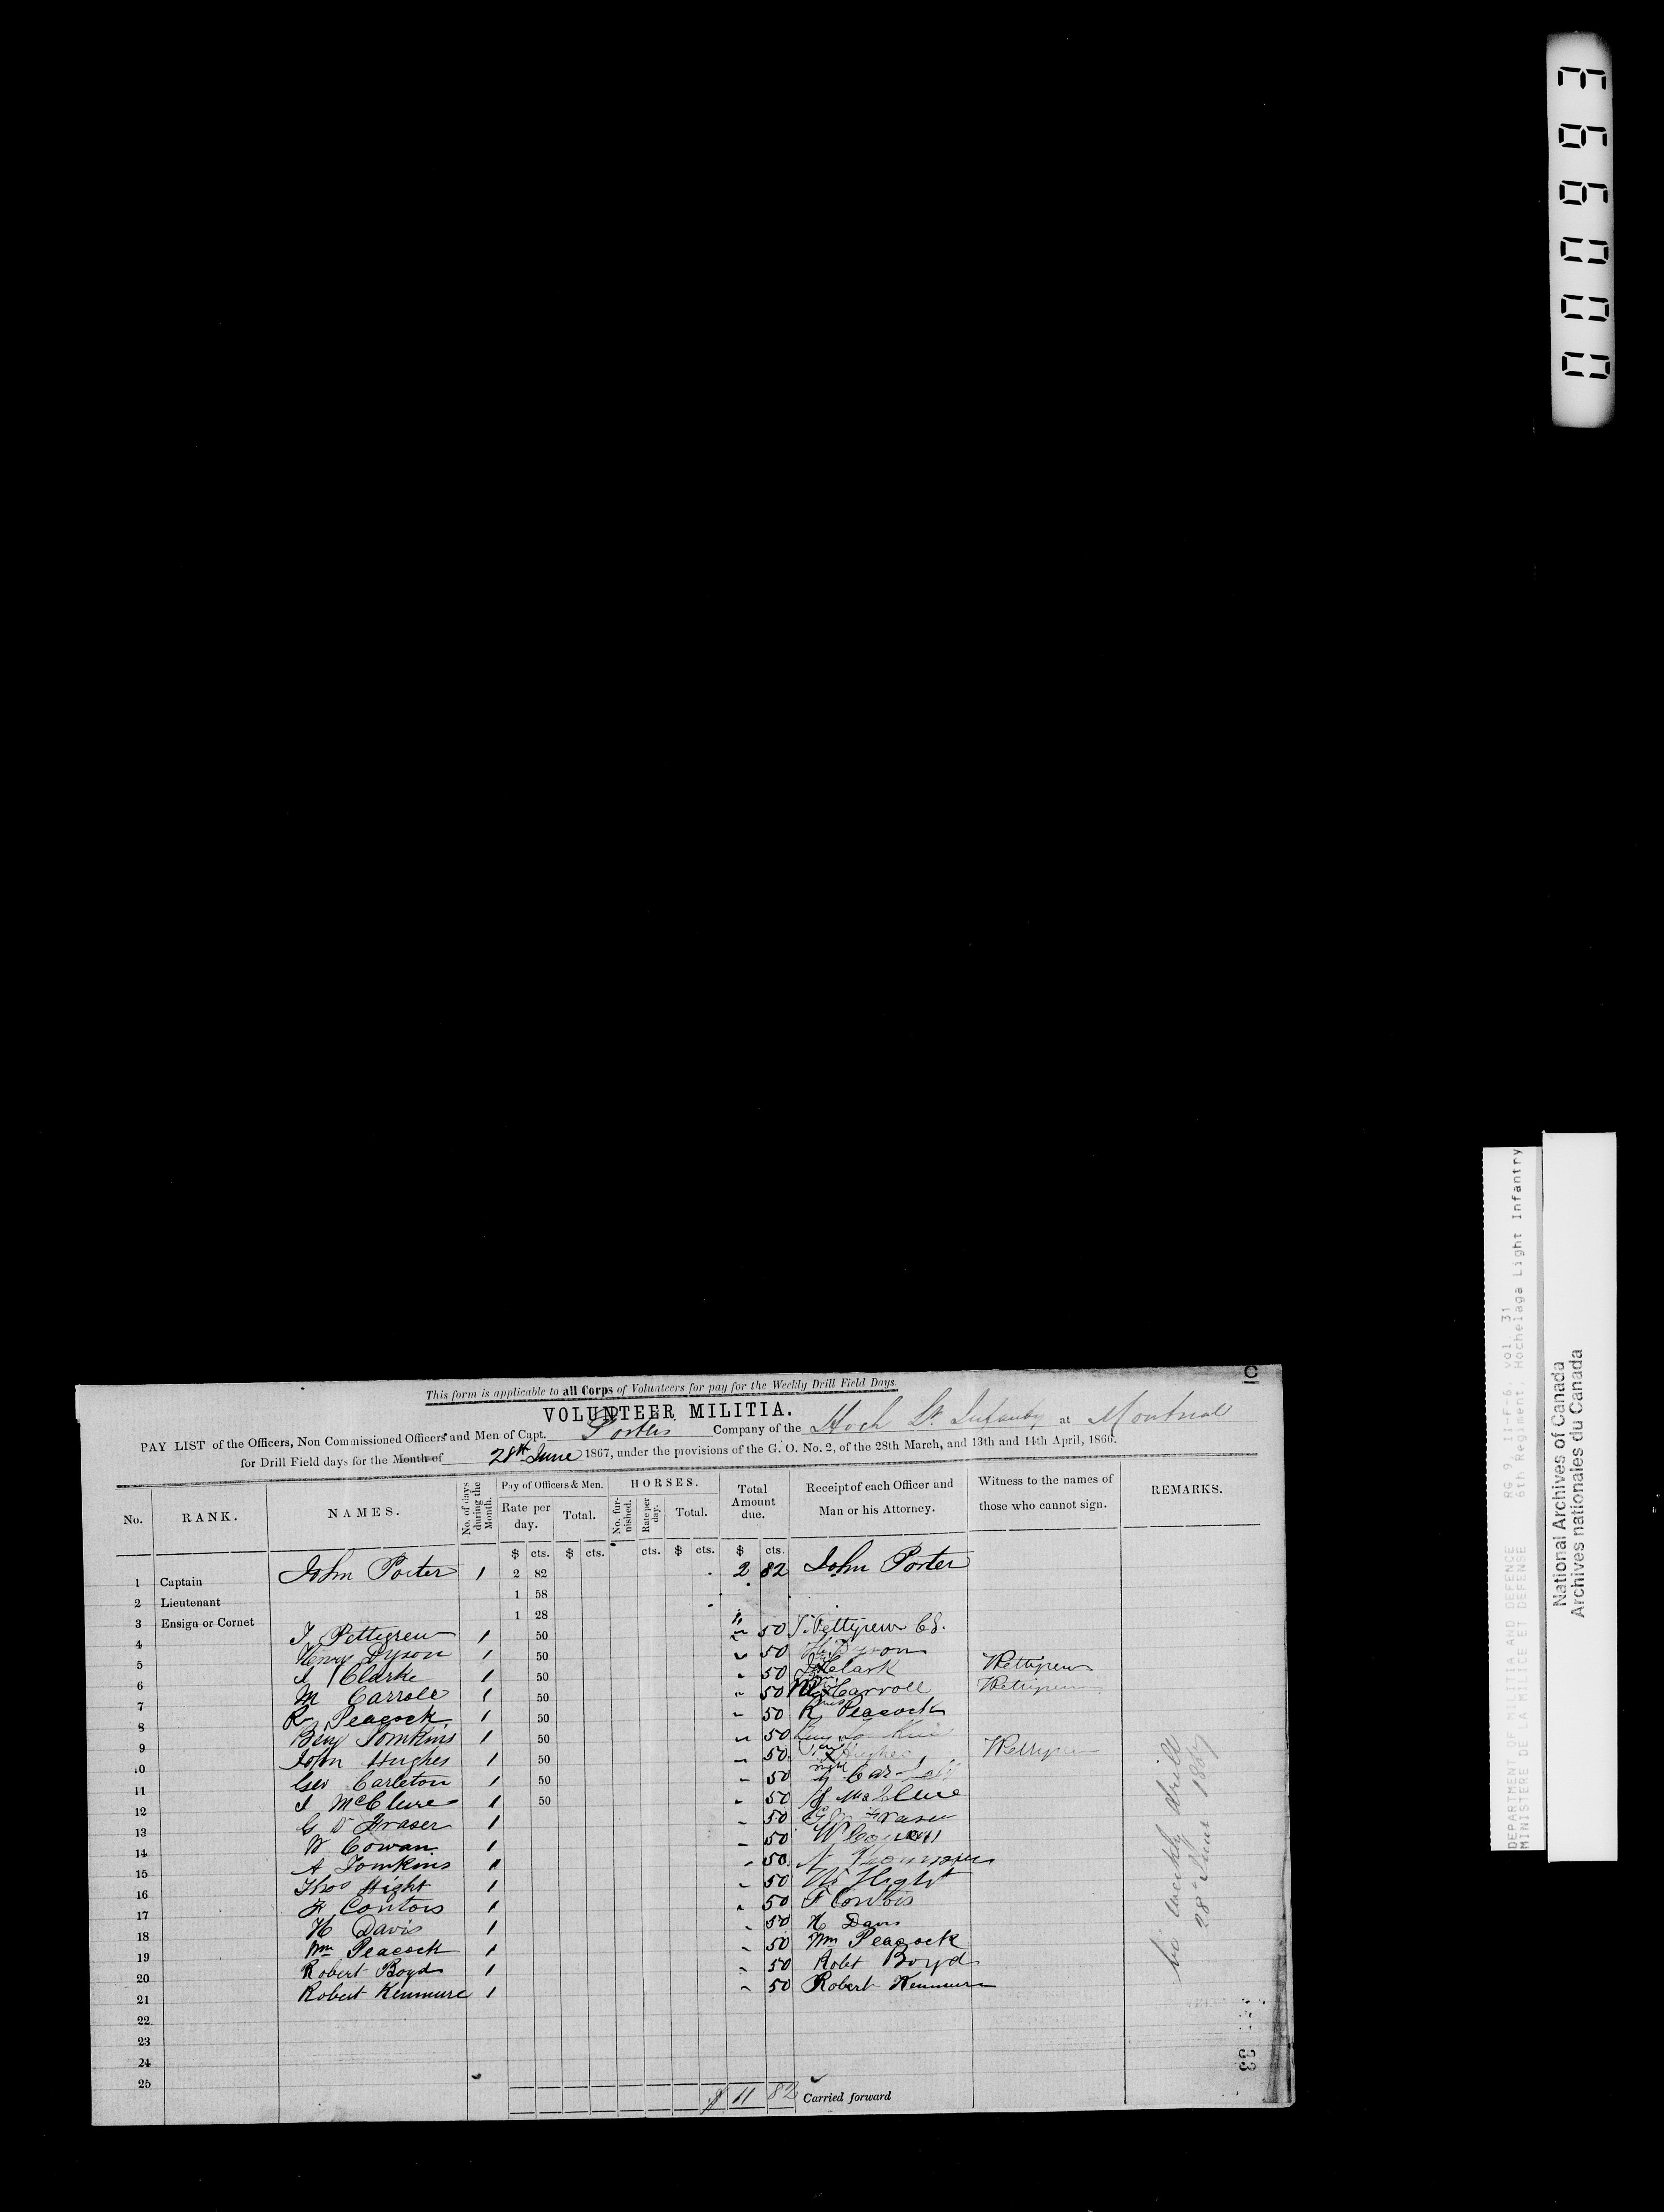 C
This form is applicable to all Corps of Volunteers for pay for the Weekly Drill Field Days.
VOLUNTEER MILITIA.
PAY LIST of the Officers, Non Commissioned Officers and Men of Capt. Porter's Company of the Hoch Lt. Infantry at Montreal
for Drill Field days for the Month of 28th June 1867, under the provisions of the G. O. No. 2, of the 28th March, and 13th and 14th April, 1866.
No. RANK. NAMES. No. of days during the Month. Pay of Officers & Men. Rate per day. Total. HORSES. No. furnished. Rate per day. Total. Total Amount due. Receipt of each Officer and Man or his Attorney. Witness to the names of those who cannot sign. REMARKS.
$ cts. $ cts. cts. $ cts. $ cts.
1 Captain John Porter 1 2 82 2 82 John Porter
2 Lieutenant 1 58
3 Ensign or Cornet 1 28
4 J Pettigrew 1 50 " 50 J. Pettigrew
5 Henry Dyson 1 50 " 50 Dyson
6 J Clarke 1 50 " 50 Clark Pettigrew
7 M Carroll 1 50 " 50 Carroll Pettigrew
8 R Peacock 1 50 " 50 R Peacock
9 Benj Tomkins 1 50 " 50
10 John Hughes 1 50 " 50 Hughes Pettigrew
11 Geo Carleton 1 50 " 50
12 J McClure 1 50 " 50 McClure
13 G D Fraser 1 " 50 Fraser
14 W Cowan 1 " 50 W Cowan
15 A Tomkins 1 " 50 A
16 Thos Hight 1 " 50 Hight
17 F Contois 1 " 50 F Contois
18 H Davis 1 " 50 H Davis
19 Wm Peacock 1 " 50 Wm Peacock
20 Robert Boyd 1 " 50 Robt Boyd
21 Robert Kenmure 1 " 50 Robert Kenmure
22
23
24
25
$ 11 82 Carried forward
bi weekly drill
28th June 1867
33
DEPARTMENT OF MILITIA AND DEFENCE RG 9, II-F-6, vol. 31
MINISTERE DE LA MILICE ET DEFENSE 6th Regiment, Hochelaga Light Infantry
National Archives of Canada
Archives nationales du Canada